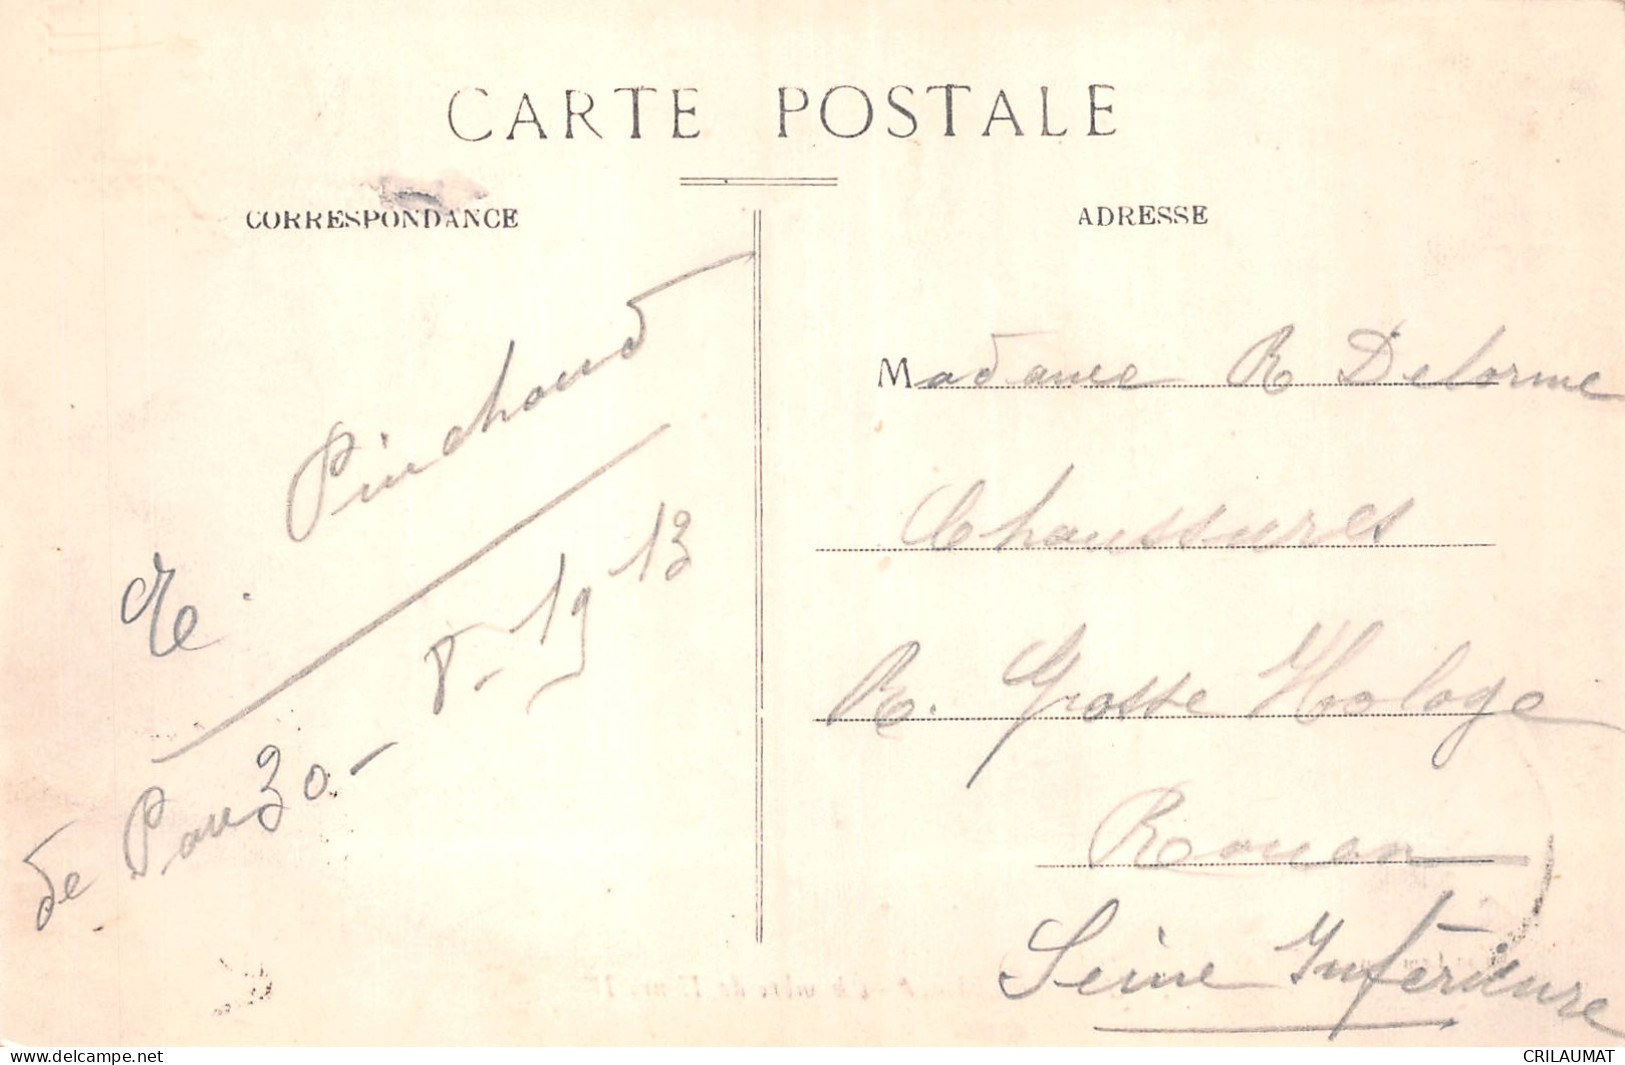 CARTE POSTALE
CORRESPONDANCE
ADRESSE
Pinchaud
de Pau 30 - 8 - 1913
Madame R Delorme
Chaussures
R. Grosse Hologe
Rouen
Seine Inférieure
www.delcampe.net
CRILAUMAT